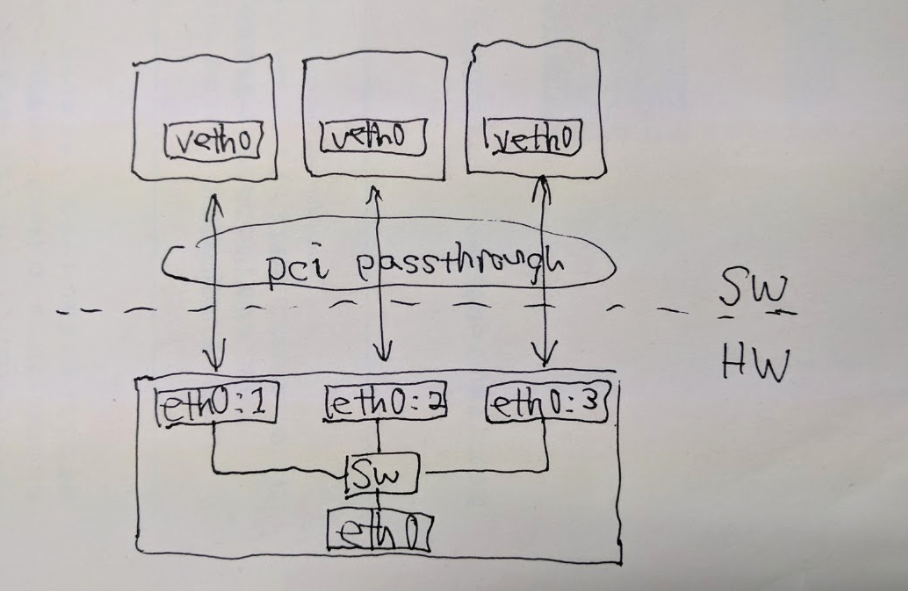 veth0 veth0 veth0
pci passthrough
SW
HW
eth0:1 eth0:2 eth0:3
SW
eth0